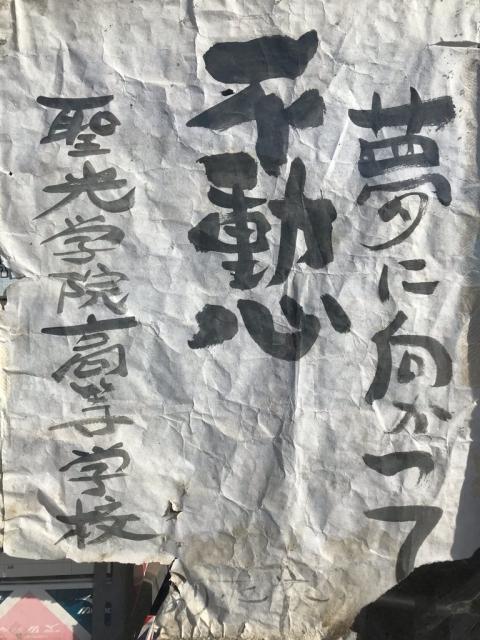 夢に向かって
不動心
聖光学院高等学校